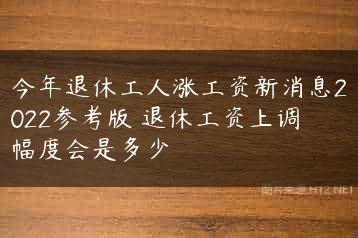 今年退休工人涨工资新消息2
022参考版 退休工资上调
幅度会是多少